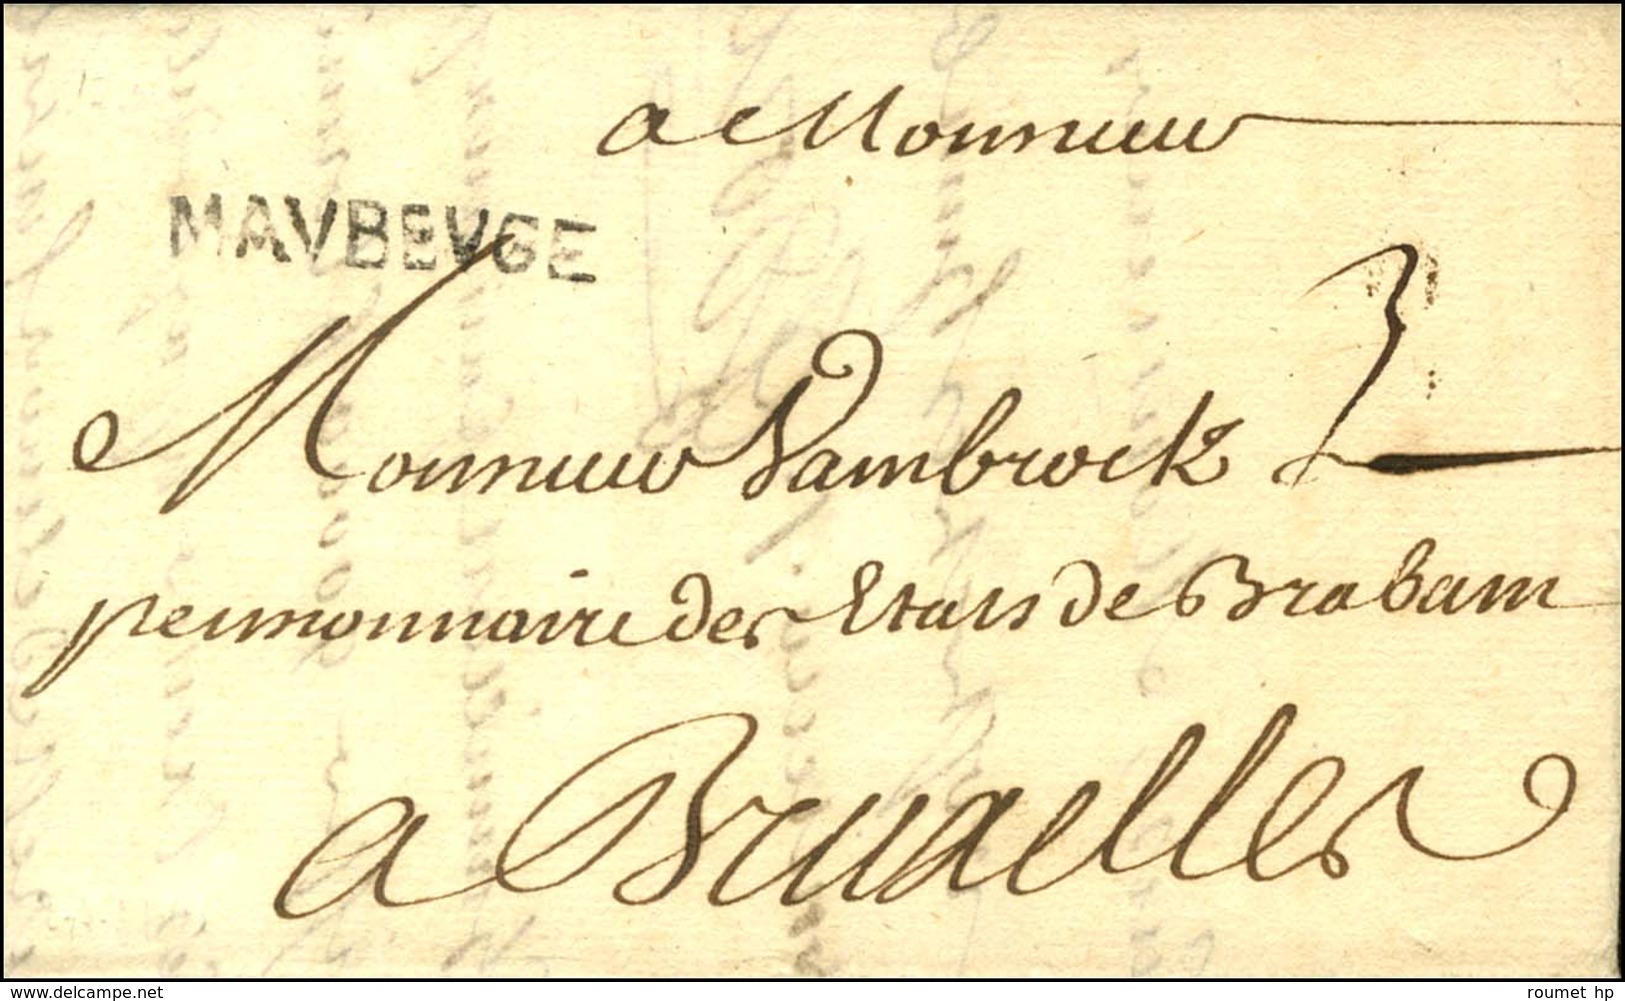 a Monsieur
MAVBEVGE
Monsieur Vambrock
3
pensionnaire des Etats de Brabam
a Bruxelles
delcampe.net
roumet hp